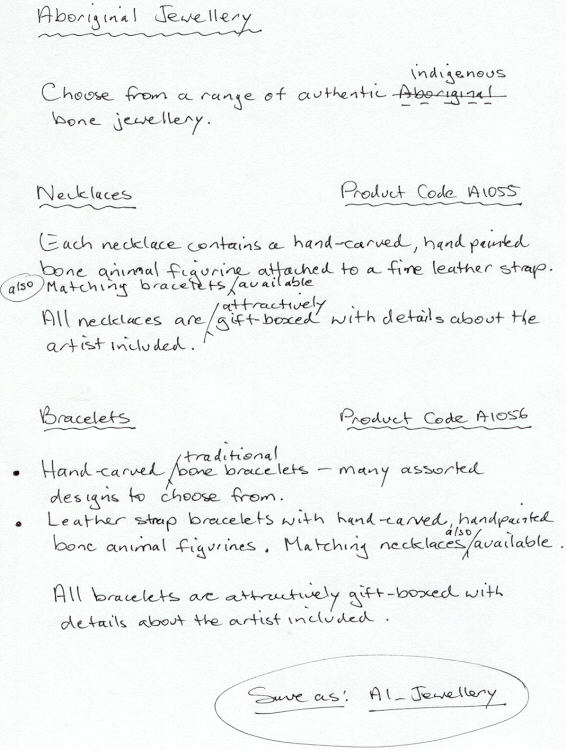 Aboriginal Jewellery
indigenous
Choose from a range of authentic Aboriginal
bone jewellery.
Necklaces Product Code A1055
Each necklace contains a hand-carved, hand painted
bone animal figurine attached to a fine leather strap.
also Matching bracelets/available
attractively
All necklaces are/gift-boxed with details about the
artist included.
Bracelets Product Code A1056
traditional
• Hand-carved/bone bracelets – many assorted
designs to choose from.
• Leather strap bracelets with hand-carved, handpainted
also
bone animal figurines. Matching necklaces/available.
All bracelets are attractively gift-boxed with
details about the artist included.
Save as: A1_Jewellery